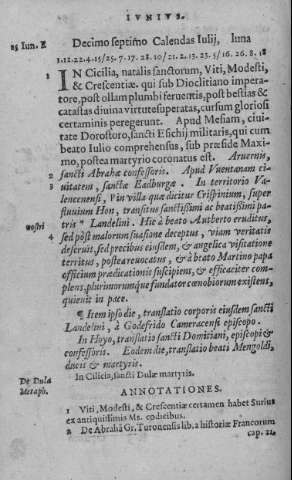 IVNIVS.
15 Iun. E Decimo septimo Calendas Iulij, luna
1.12.22.4.15/25.7.17.28.10/21.2.13.23.5/16.26.8.18
1 IN Cicilia, natalis sanctorum, Viti, Modesti,
& Crescentiæ. qui sub Dioclitiano impera-
tore, post ollam plumbi feruentis, post bestias &
catastas diuina virtute superatas, cursum gloriosi
certaminis peregerunt. Apud Mesiam, ciui-
tate Dorostoro, sancti Eschij militaris, qui cum
beato Iulio comprehensus, sub præside Maxi-
mo, postea martyrio coronatus est. Aruernis,
2 sancti Abrahæ confessoris. Apud Vuentanam ci-
3 uitatem, sanctæ Eadburgæ. In territorio Va-
lencenensi, in villa quæ dicitur Crispinium, super
fluuium Hon, transitus sanctissimi ac beatissimi pa-
nostri tris Landelini. Hic à beato Autberto eruditus,
4 sed post malorum suasione deceptus, viam veritatis
deseruit, sed precibus eiusdem, & angelica visitatione
territus, postea reuocatus, & à beato Martino papa
officium prædicationis suscipiens, & efficaciter com-
plens, plurimorumque fundator cœnobiorum existens,
quieuit in pace.
¶ Item ipso die, translatio corporis eiusdem sancti
Landelini, à Godefrido Cameracensi episcopo.
In Hoyo, translatio sancti Domitiani, episcopi &
confessoris. Eodem die, translatio beati Mengoldi,
ducis & martyris.
De Dula In Cilicia, sancti Dulæ martyris.
Metaph. ANNOTATIONES.
1 Viti, Modesti, & Crescentiæ certamen habet Surius
ex antiquissimis Ms. codicibus.
2 De Abrahā Gr. Turonensis lib. 2 historiæ Francorum
cap. 21.